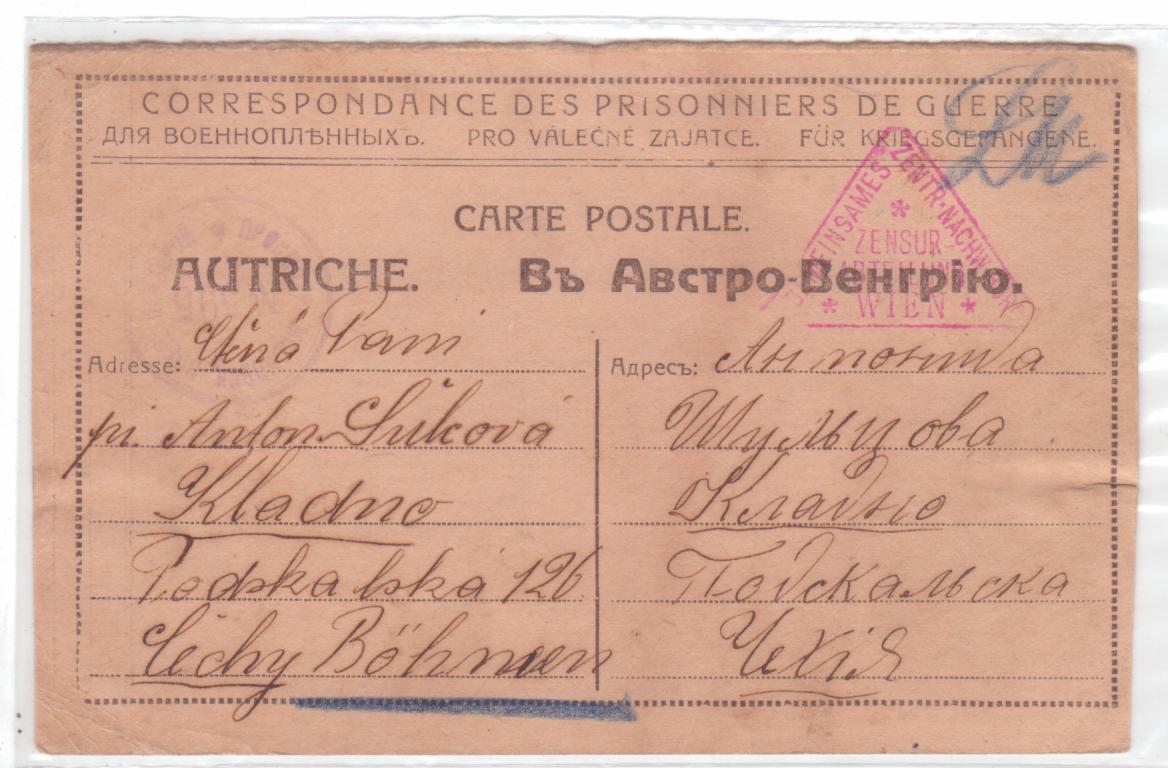 CORRESPONDANCE DES PRISONNIERS DE GUERRE
ДЛЯ ВОЕННОПЛѢННЫХЪ. PRO VÁLEČNÉ ZAJATCE. FÜR KRIEGSGEFANGENE.
CARTE POSTALE.
GEMEINSAMES ZENTR-NACHW-BUR
ZENSUR-
ABTEILUNG
WIEN
AUTRICHE. Въ Австро-Венгрію.
Adresse: Ctěná Paní
pí. Anton. Šulcová
Kladno
Podskalská 126
Čechy Böhmen
Адресъ: Антонида
Шульцова
Кладно
Подскальска
Чехія